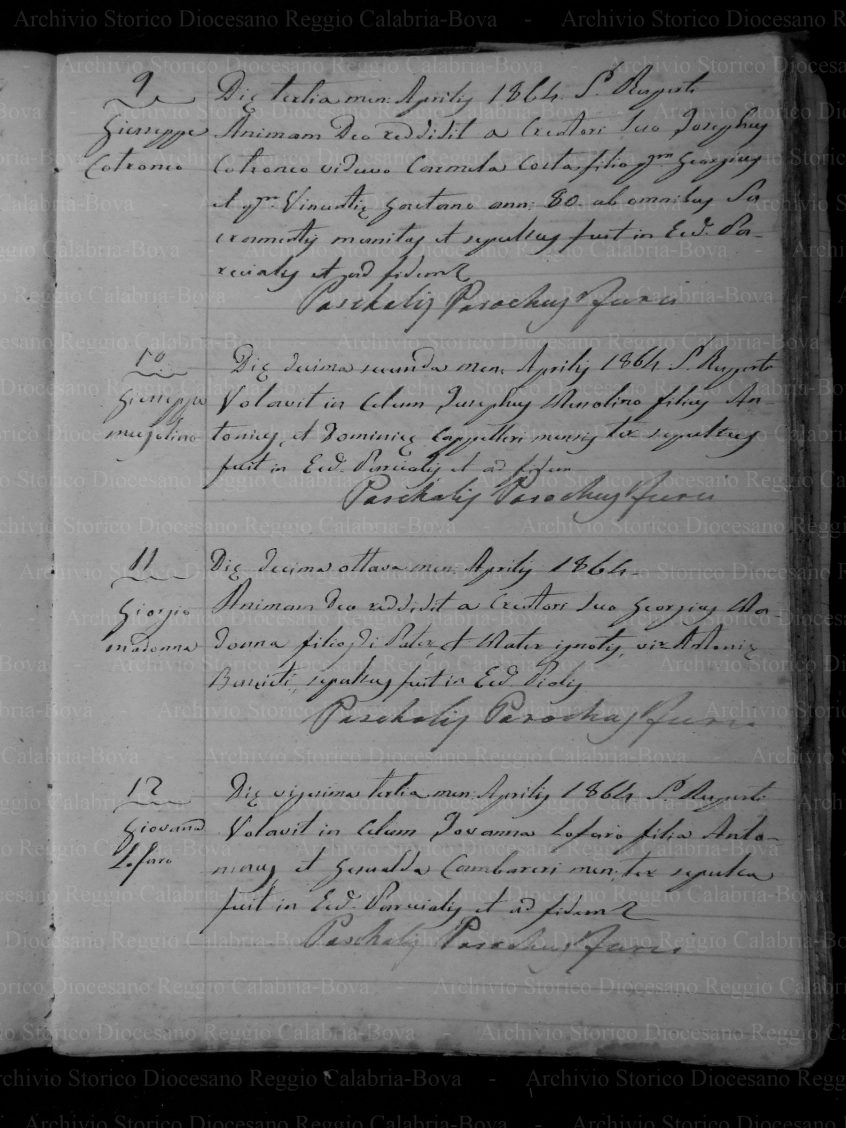 9
Giuseppe
Cotroneo
Die tertia men: Aprilis 1864. S. Ruperti
Animam Deo reddidit a Creatori suo Josephus
Cotroneo viduvo Carmela Costa filio qm Georgius
et qm Vincentie Gaetano ann: 80. ab omnibus Sa
cramentis munitus et sepultus fuit in Eccl: Pa-
rocialis et ad fidem
Paschalis Parochus Furci
10
Giuseppe
musolino
Die decima secunda men: Aprilis 1864 S. Ruperti
Volavit in Celum Josephus Musolino filius An-
tonius et Dominice Cappelleri mensis tex sepultus
fuit in Eccl: Parocialis et ad fidem
Paschalis Parochus Furci
11
Giorgio
madonna
Die decima ottava men: Aprilis 1864.
Animam Deo reddidit a Creatori suo Georgius Ma
donna filio di Pater et Mater ignotis vir Antonie
sepultus fuit in Eccl:
Paschalis Parochus Furci
12
Giovana
Lofaro
Die vigesima tertia men: Aprilis 1864 S. Ruperti
Volavit in Celum Jovanna Lofaro filia Anto-
nius et Gesualda Cambareri men: tex sepulta
fuit in Eccl: Parocialis et ad fidem
Paschalis Parochus Furci
Archivio Storico Diocesano Reggio Calabria-Bova